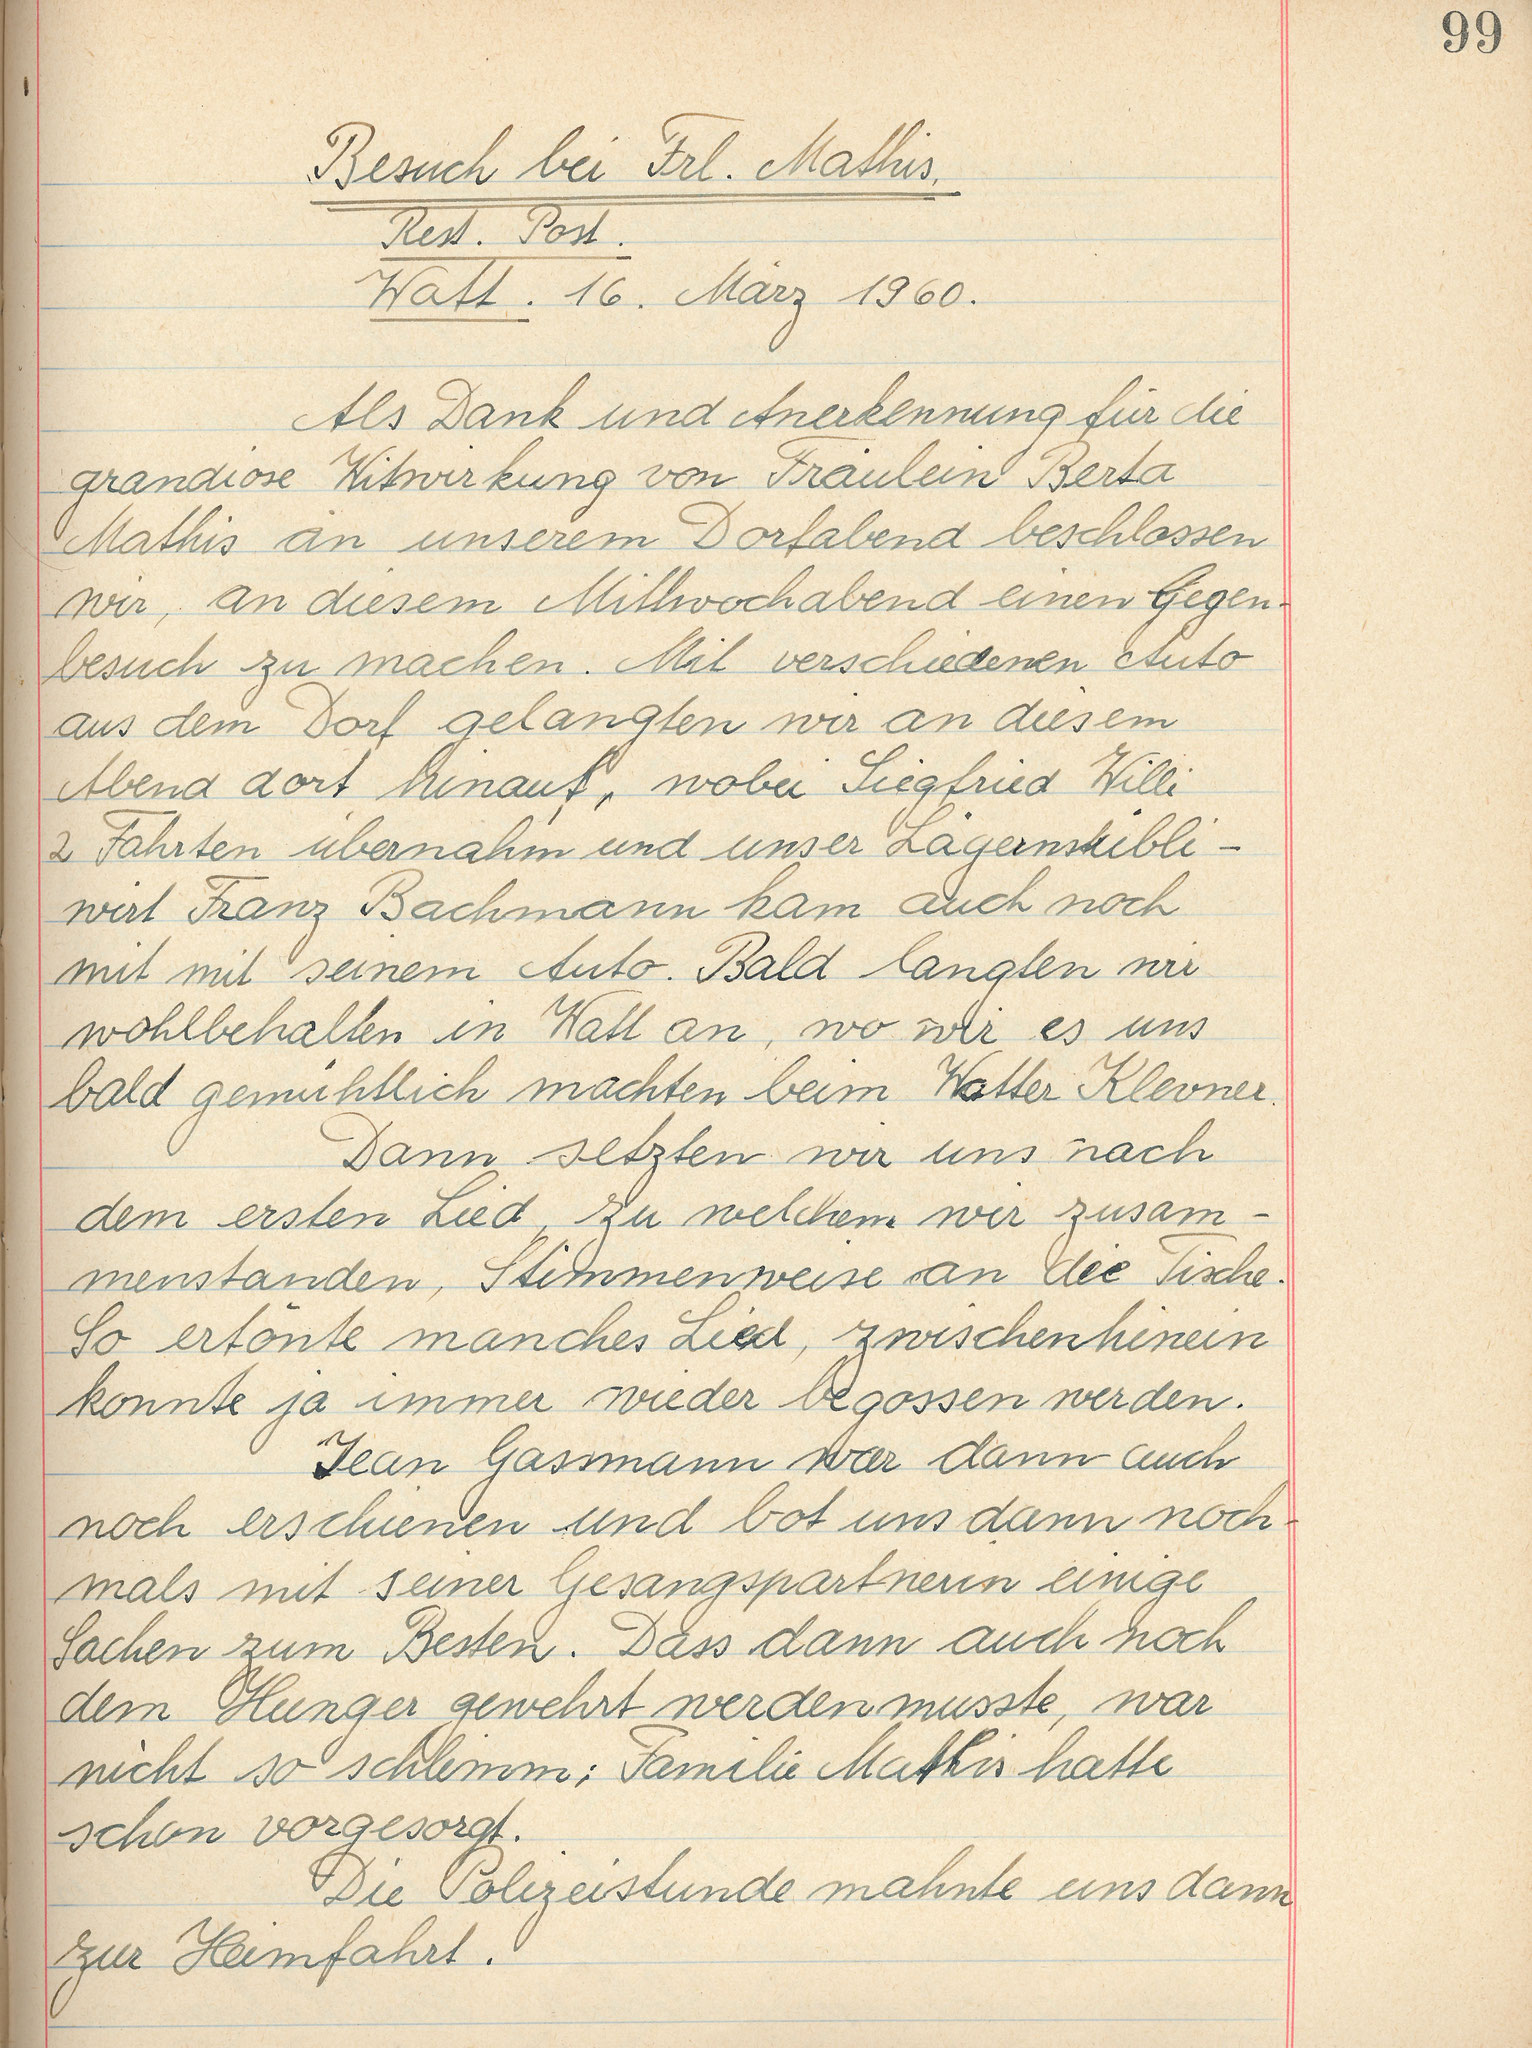 99
Besuch bei Frl. Mathis.
Rest. Post.
Watt. 16. März 1960.
Als Dank und Anerkennung für die
grandiose Mitwirkung von Fräulein Berta
Mathis an unserem Dorfabend beschlossen
wir, an diesem Mittwochabend einen Gegen-
besuch zu machen. Mit verschiedenen Auto
aus dem Dorf gelangten wir an diesem
Abend dort hinauf, wobei Siegfried Willi
2 Fahrten übernahm und unser Lägernstübli-
wirt Franz Bachmann kam auch noch
mit mit seinem Auto. Bald langten wir
wohlbehalten in Watt an, wo wir es uns
bald gemühtlich machten beim Watter Klevner.
Dann setzten wir uns nach
dem ersten Lied, zu welchem wir zusam-
menstanden, Stimmenweise an die Tische.
So ertönte manches Lied, zwischenhinein
konnte ja immer wieder begossen werden.
Jean Gassmann war dann auch
noch erschienen und bot uns dann noch-
mals mit seiner Gesangspartnerin einige
Sachen zum Besten. Dass dann auch noch
dem Hunger gewehrt werden musste, war
nicht so schlimm; Familie Mathis hatte
schon vorgesorgt.
Die Polizeistunde mahnte uns dann
zur Heimfahrt.